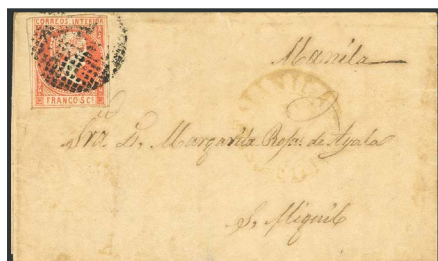 CORREOS INTERIOR
FRANCO 5 Cs
Manila
MANILA
Sra. D. Margarita Rojas de Ayala
S. Miguel